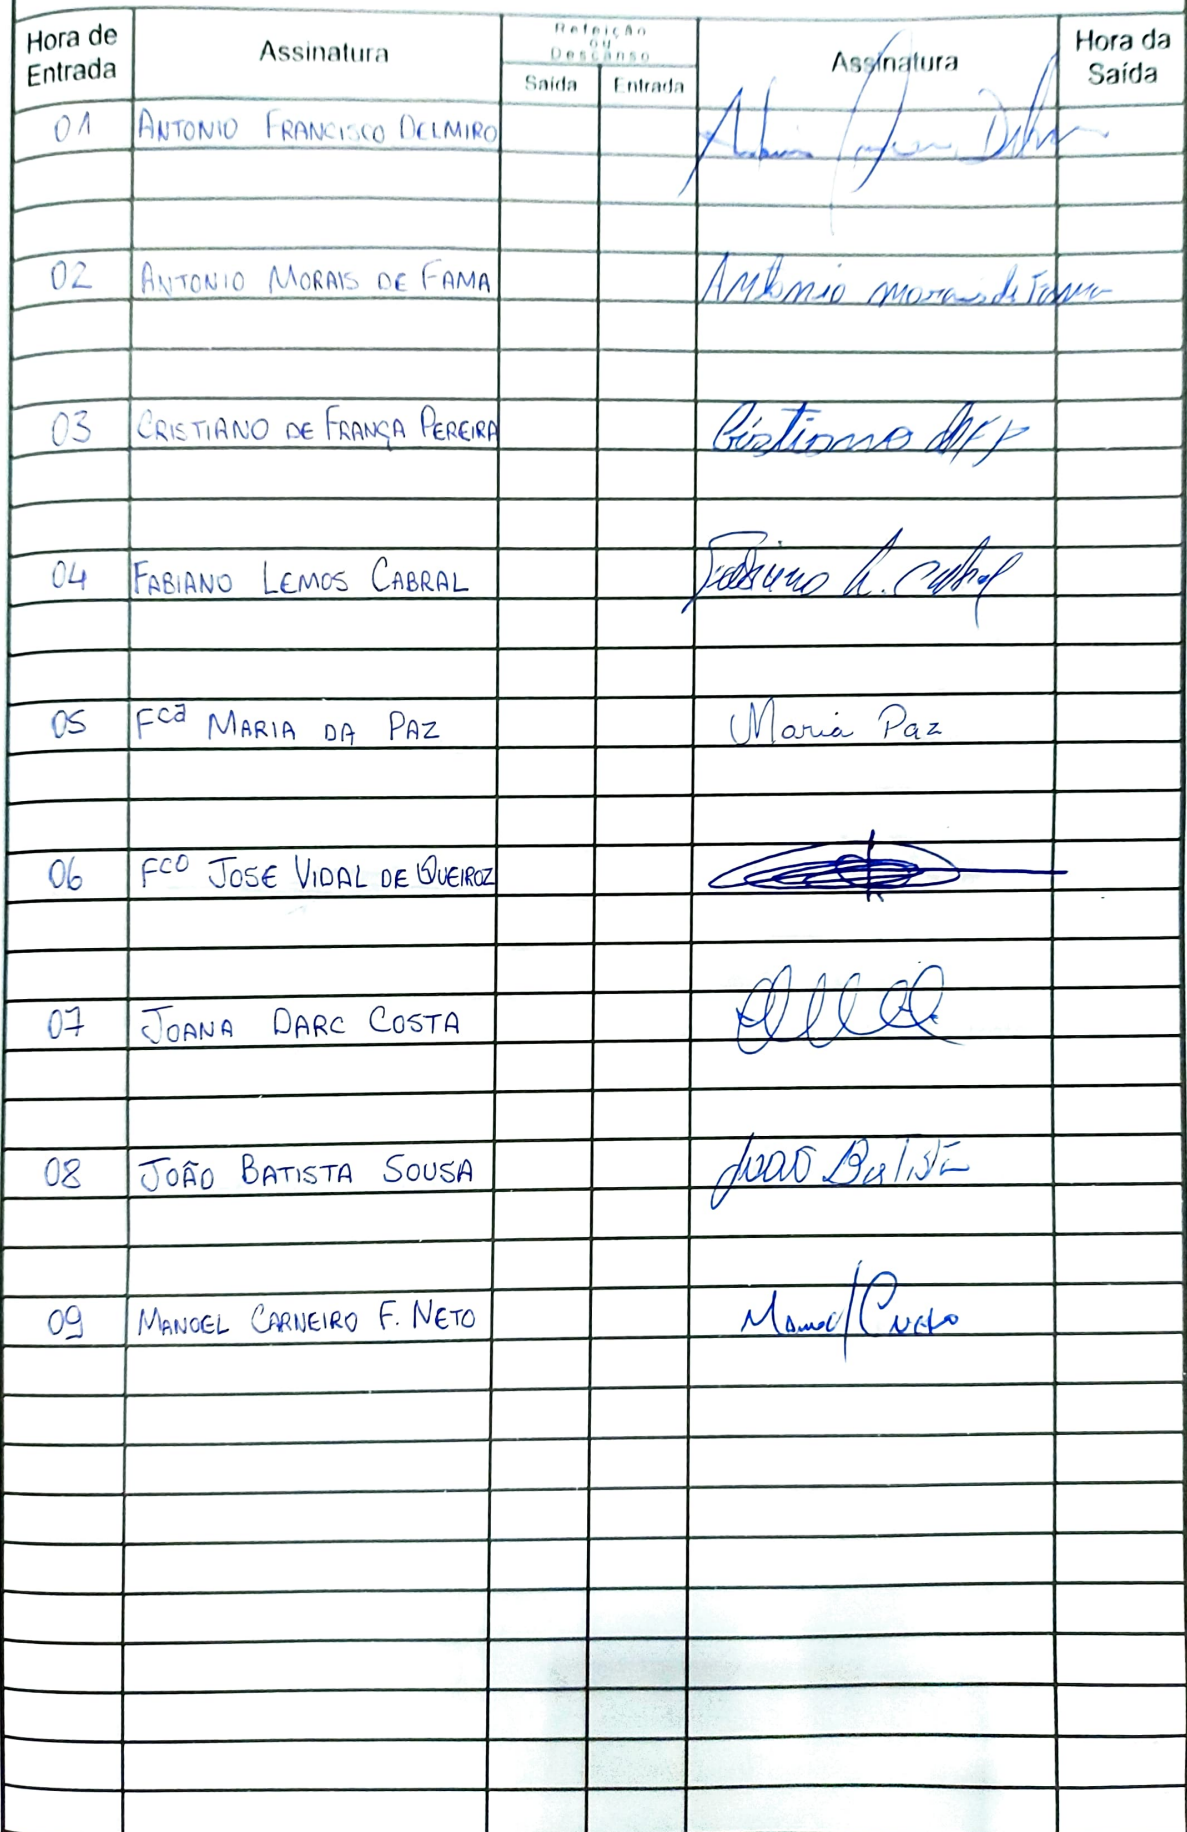 Hora de Entrada Assinatura Refeição ou Descanso Saída Entrada Assinatura Hora da Saída
01 ANTONIO FRANCISCO DELMIRO
02 ANTONIO MORAIS DE FAMA Antonio Morais de Fama
03 CRISTIANO DE FRANÇA PEREIRA Cristiano
04 FABIANO LEMOS CABRAL Fabiano L. Cabral
05 Fcª MARIA DA PAZ Maria Paz
06 Fcº JOSE VIDAL DE QUEIROZ
07 JOANA DARC COSTA
08 JOÃO BATISTA SOUSA João Batista
09 MANOEL CARNEIRO F. NETO Manoel C Neto